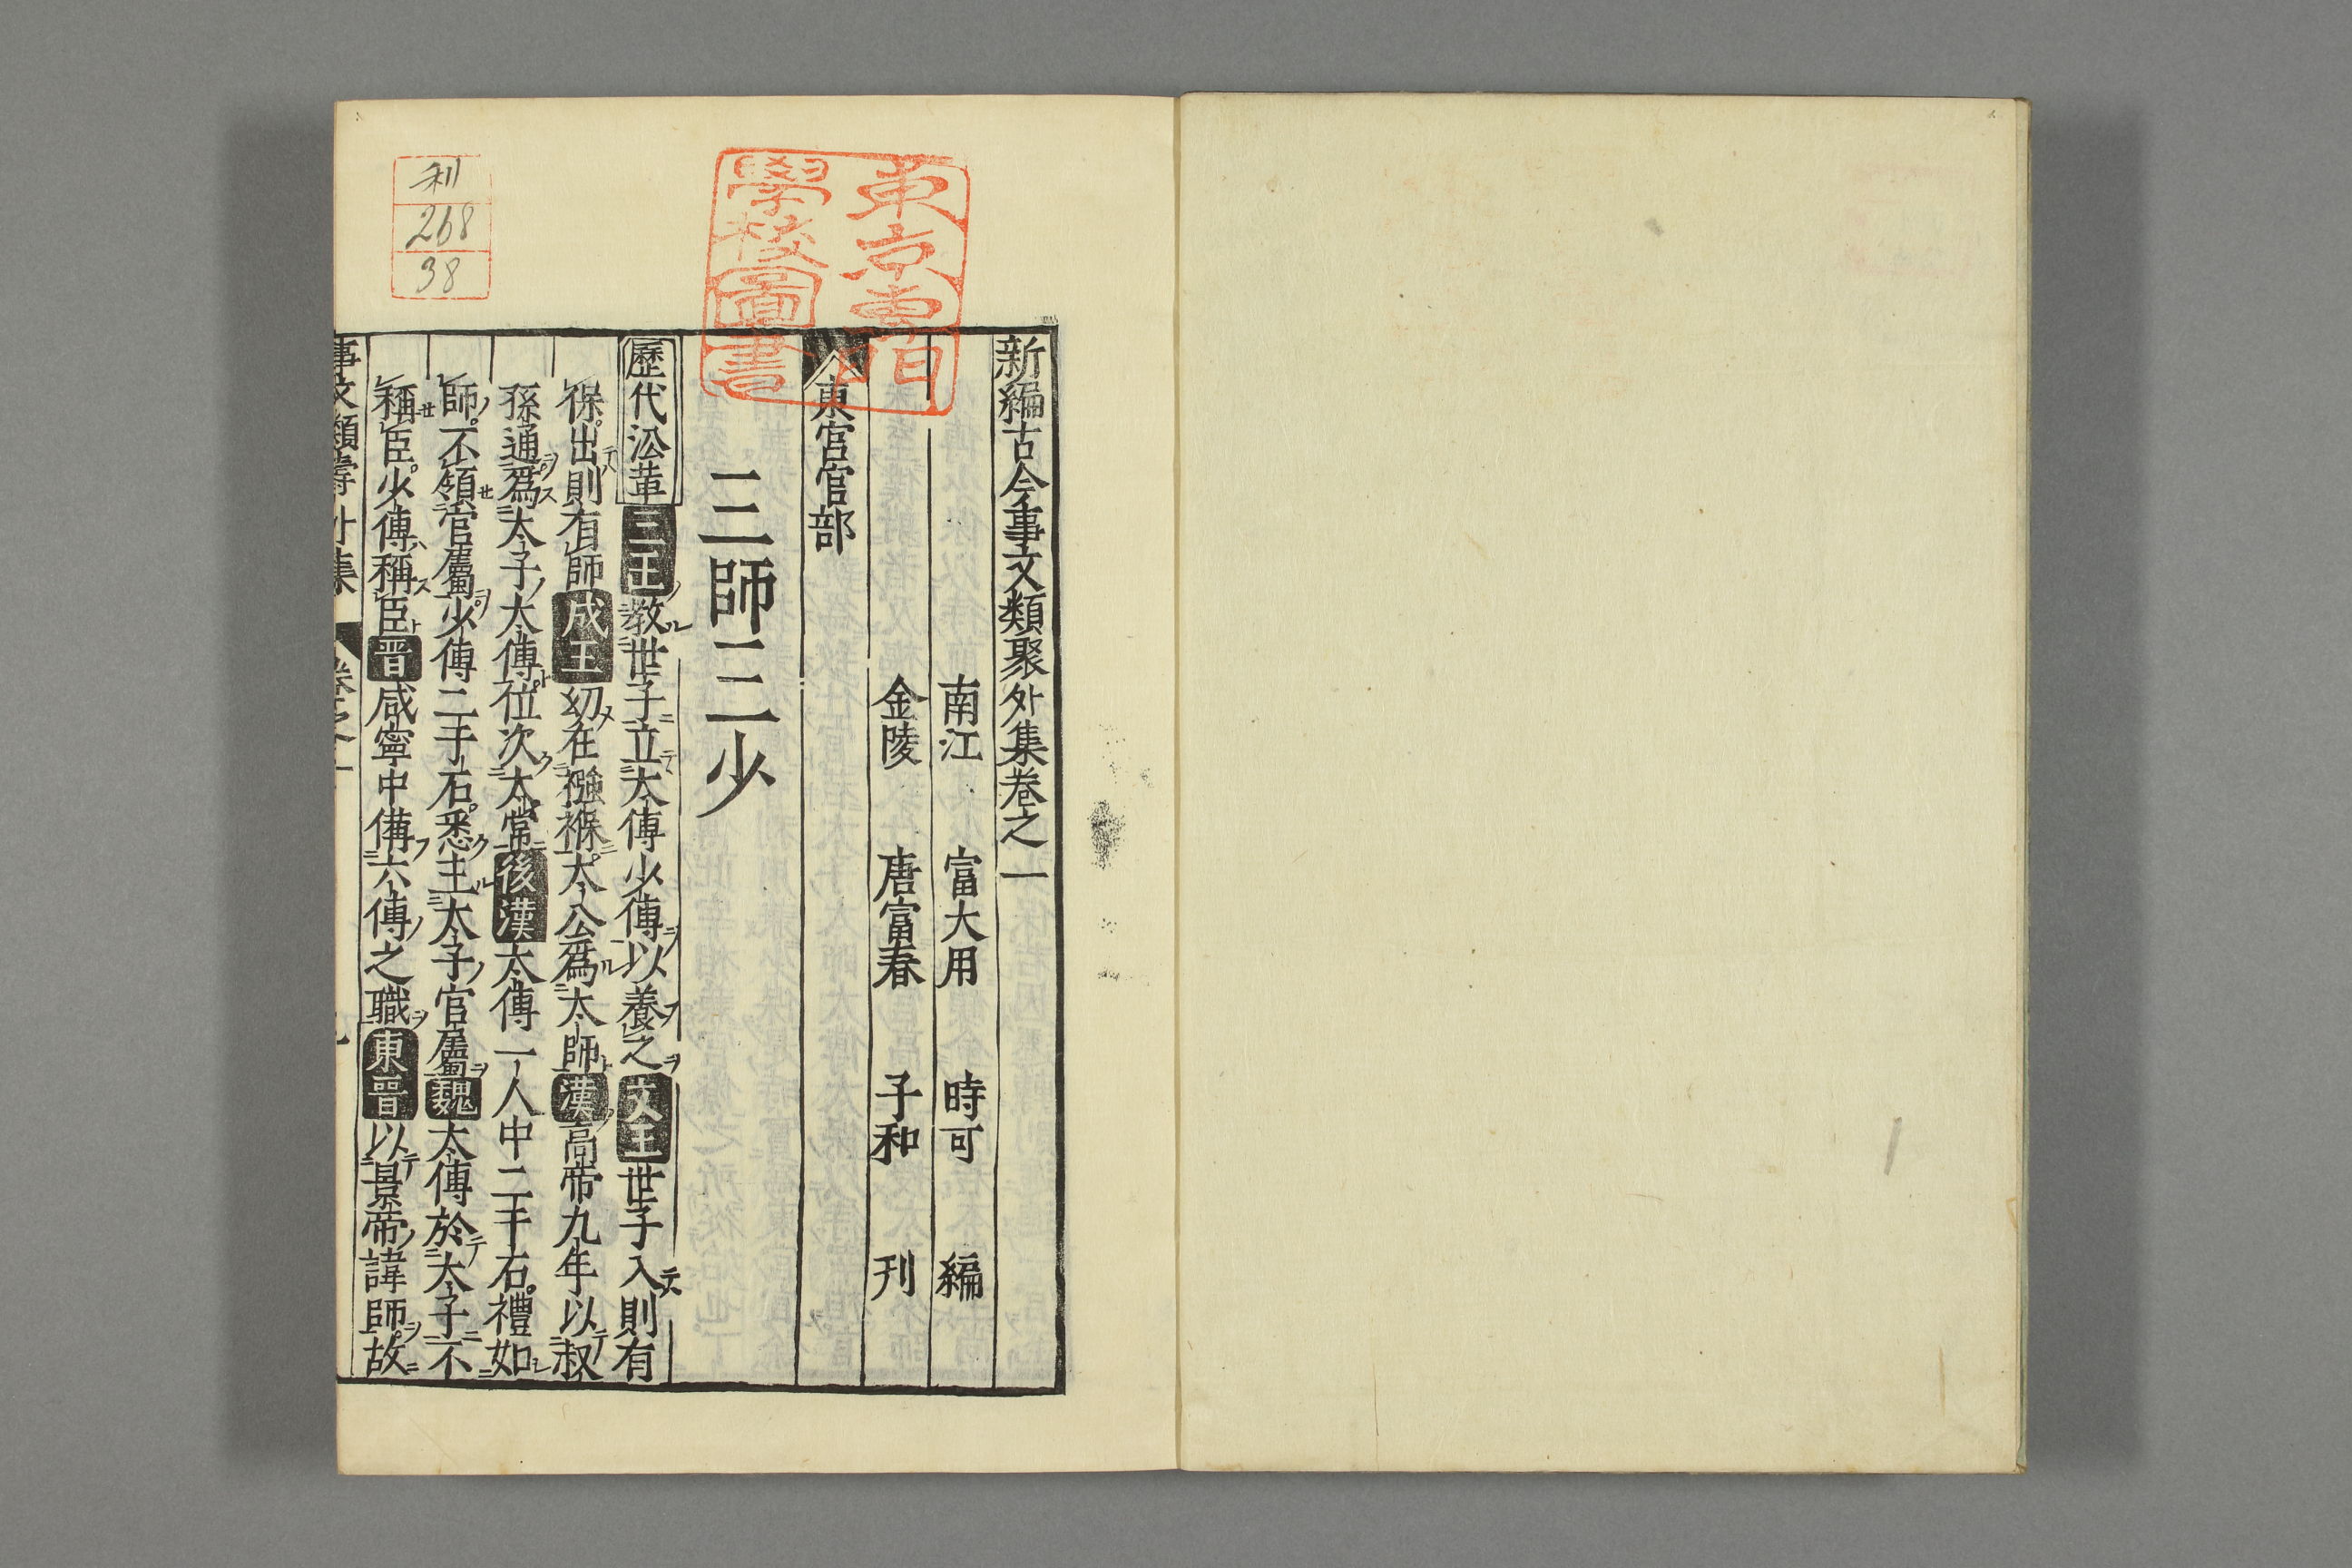 新編古今事文類聚外集卷之一
南江 富大用 時可 編
金陵 唐富春 子和 刊
東宮官部
三師三少
歷代沿革三王教世子立太傅少傅以養之文王世子入則有
保出則有師成王幼在襁褓太公爲太師漢高帝九年以叔
孫通爲太子太傅位次太常後漢太傅一人中二千石禮如
師不領官屬少傅二千石悉主太子官屬魏太傅於太子不
稱臣少傅稱臣晋咸寧中備六傅之職東晋以景帝諱師故
東京專門
學校圖書
利
268
38